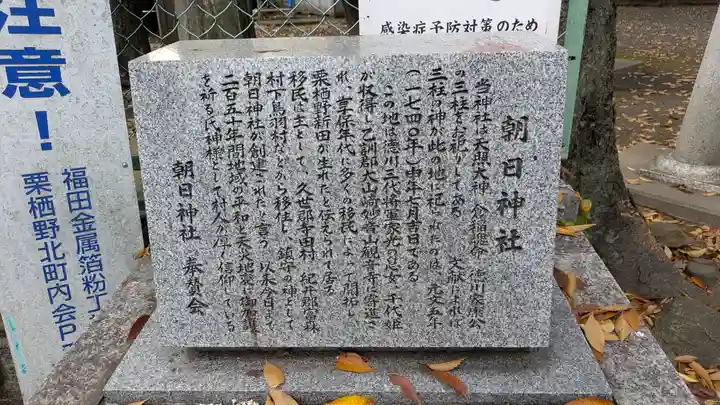 朝日神社
当神社は天照大神 倉稲魂命 徳川家康公
の三柱をお祀りしてある 文献によれば
三柱の神が此の地に祀られたのは 元文五年
(一七四〇年)申年七月吉日である
この地は徳川三代将軍家光の息女 千代姫
が収得し乙訓郡大山崎妙音山観音寺に寄進さ
れ、享保年代に多くの移民によって開拓し
栗栖野新田が生れたと伝えられて居る
移民は主として、久世郡寺田村 紀井郡富森
村下鳥羽村などから移住し、鎮守の神として
朝日神社が創建されたと言う 以来今日まで
二百五十年間地域の平和と天火地変に御加護
を祈る氏神様として村人が厚く信仰している
朝日神社 奉賛会
注意!
福田金属箔粉工
栗栖野北町内会P
感染症予防対策のため